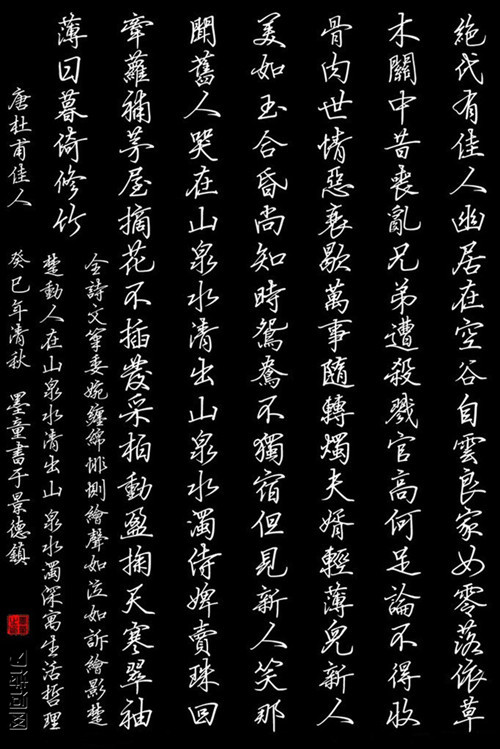 絶代有佳人幽居在空谷自雲良家女零落依草
木關中昔喪亂兄弟遭殺戮官高何足論不得收
骨肉世情惡衰歇萬事隨轉燭夫婿輕薄兒新人
美如玉合昏尚知時鴛鴦不獨宿但見新人笑那
聞舊人哭在山泉水清出山泉水濁侍婢賣珠回
牽蘿補茅屋摘花不插發采柏動盈掬天寒翠袖
薄日暮倚修竹
全詩文筆委婉纏綿悱惻繪聲如泣如訴繪影楚
楚動人在山泉水清出山 泉水濁深寓生活哲理
唐杜甫佳人
癸巳年清秋 墨童書于景德鎮